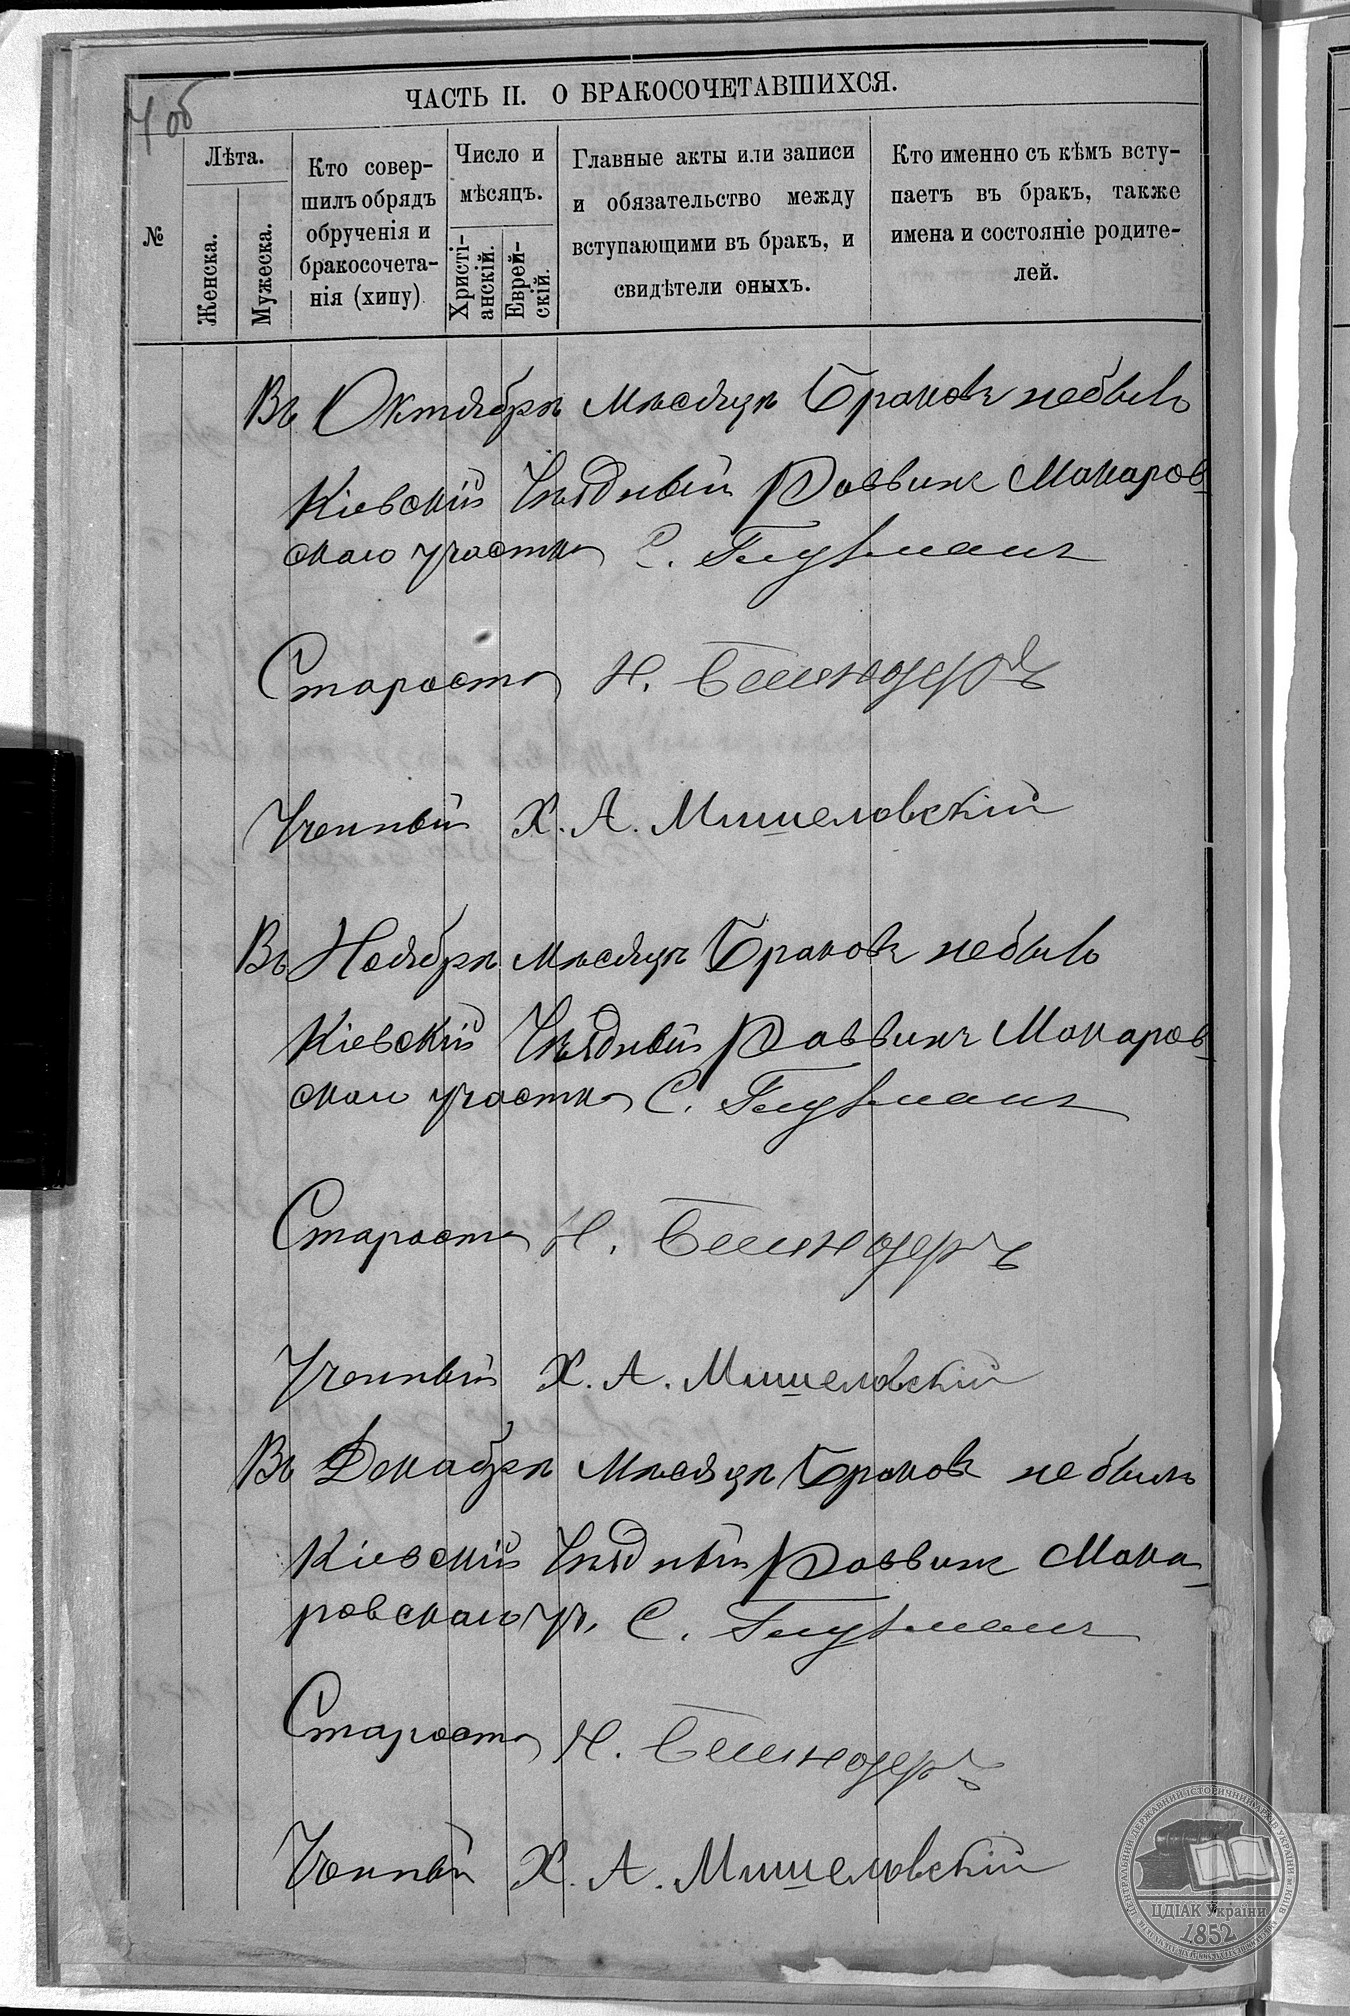 7 об
ЧАСТЬ II. О БРАКОСОЧЕТАВШИХСЯ.
№
Лѣта.
Женска.
Мужеска.
Кто совер-
шилъ обрядъ
обрученія и
бракосочета-
нія (хипу)
Число и
мѣсяцъ.
Христі-
анскій.
Еврей-
скій.
Главные акты или записи
и обязательство между
вступающими въ бракъ, и
свидѣтели оныхъ.
Кто именно съ кѣмъ всту-
паетъ въ бракъ, также
имена и состояніе родите-
лей.
Въ Октябрѣ мѣсяцѣ браковъ небыло
Кіевскій Уѣздный Раввинъ Макаров-
скаго участка С.
Староста Н.
Ученный Х. А. Мишеловскій
Въ Ноябрѣ мѣсяцѣ браковъ небыло
Кіевскій Уѣздный Раввинъ Макаров-
скаго участка С.
Староста Н.
Ученный Х. А. Мишеловскій
Въ Декабрѣ мѣсяцѣ браковъ не было
Кіевскій Уѣздный Раввинъ Мака-
ровскаго уч. С.
Староста Н.
Ученный Х. А. Мишеловскій
ЦЕНТРАЛЬНИЙ ДЕРЖАВНИЙ ІСТОРИЧНИЙ АРХІВ УКРАЇНИ, м. КИЇВ
ЦДІАК України
1852